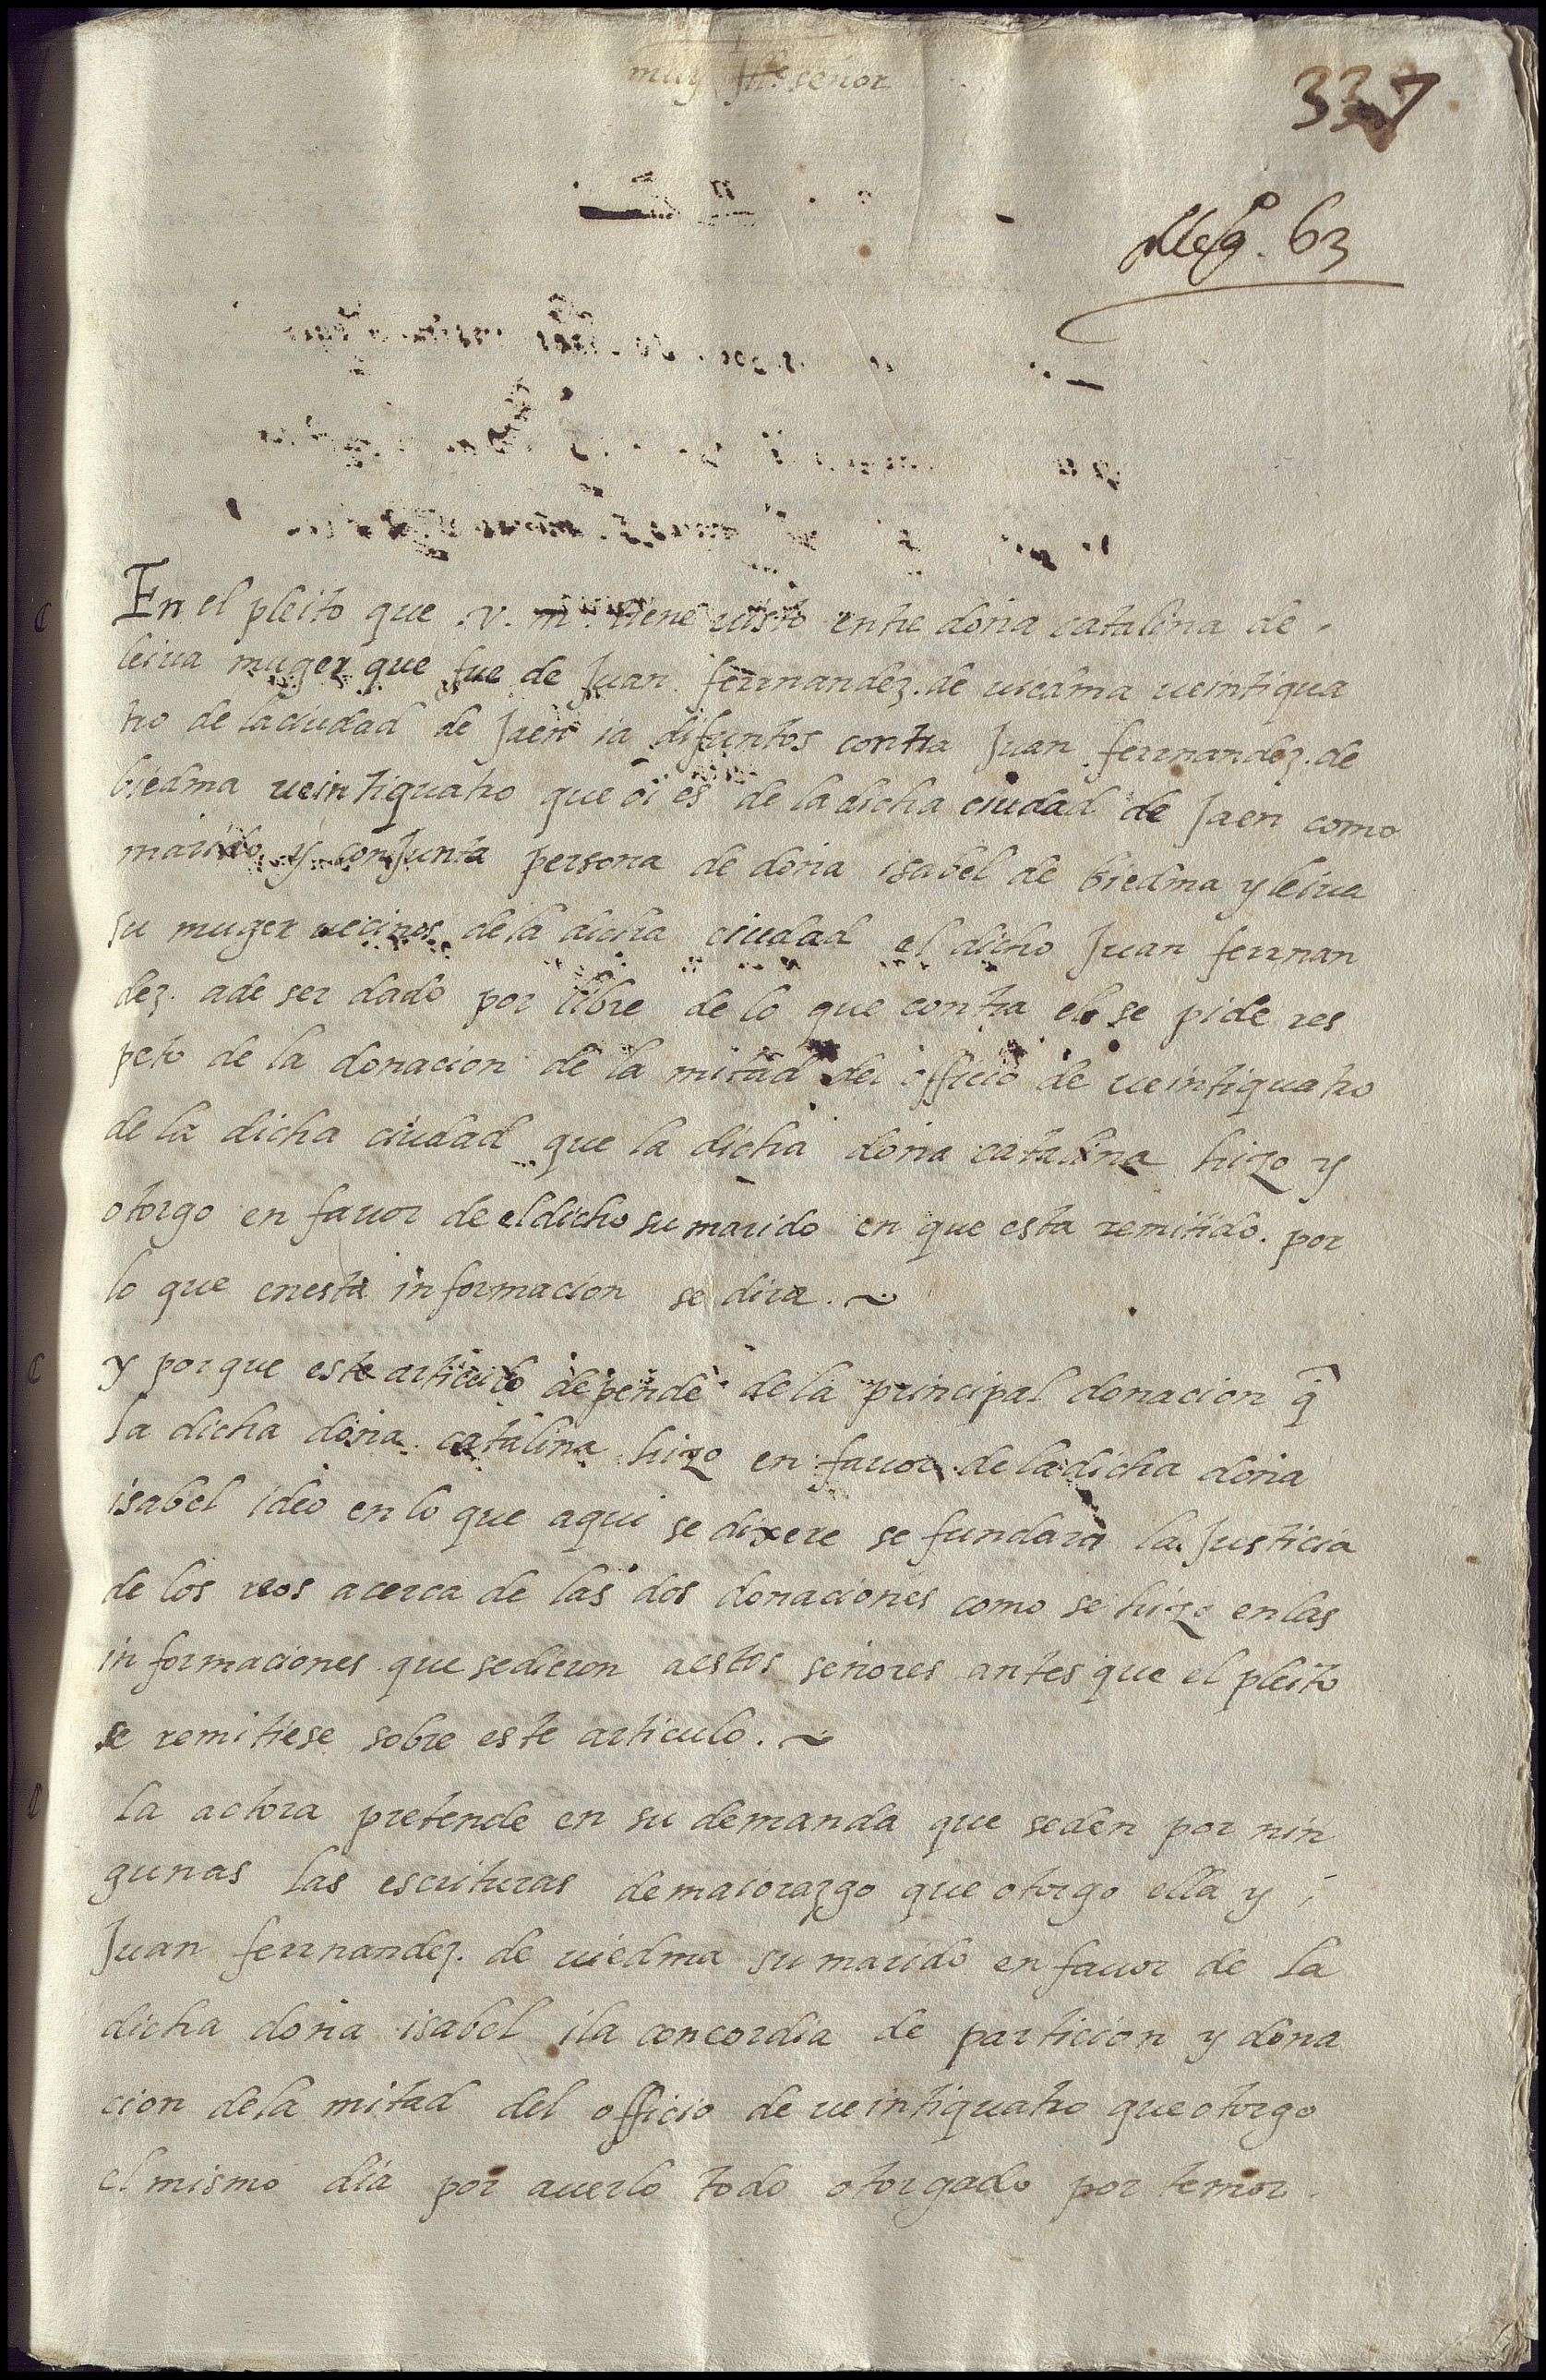 muy Ill.e señor
337
Alleg.o 63
En el pleito que .v. m. tiene visto entre doña catalina de
leiua muger que fue de Juan ferrnandez. de uiedma ueintiqua
tro de la ciudad de Jaen ia difuntos contra Juan ferrnandez. de
biedma ueintiquatro que oi es de la dicha ciudad de Jaen como
marido y conjunta persona de doña isabel de biedma y leiua
su muger uecinos de la dicha ciudad el dicho Juan ferrnan
dez. a de ser dado por libre de lo que contra el se pide res
peto de la donacion de la mitad del officio de ueintiquatro
de la dicha ciudad que la dicha doña catalina hizo y
otorgo en fauor de el dicho su marido en que esta remitido. por
lo que en esta informacion se dira. ~
y porque este articulo depende de la principal donacion q̃
la dicha doña catalina hizo en fauor de la dicha doña
isabel ideo en lo que aqui se dixere se fundara la Justicia
de los reos acerca de las dos donaciones como se hizo en las
informaciones que se dieron a estos señores antes que el pleito
se remitiese sobre este articulo. ~
la actora pretende en su demanda que se den por nin
gunas las escrituras de maiorazgo que otorgo ella y
Juan ferrnandez. de uiedma su marido en fauor de la
dicha doña isabel i la concordia de particion y dona
cion de la mitad del officio de ueintiquatro que otorgo
el mismo dia por auerlo todo otorgado por temor.